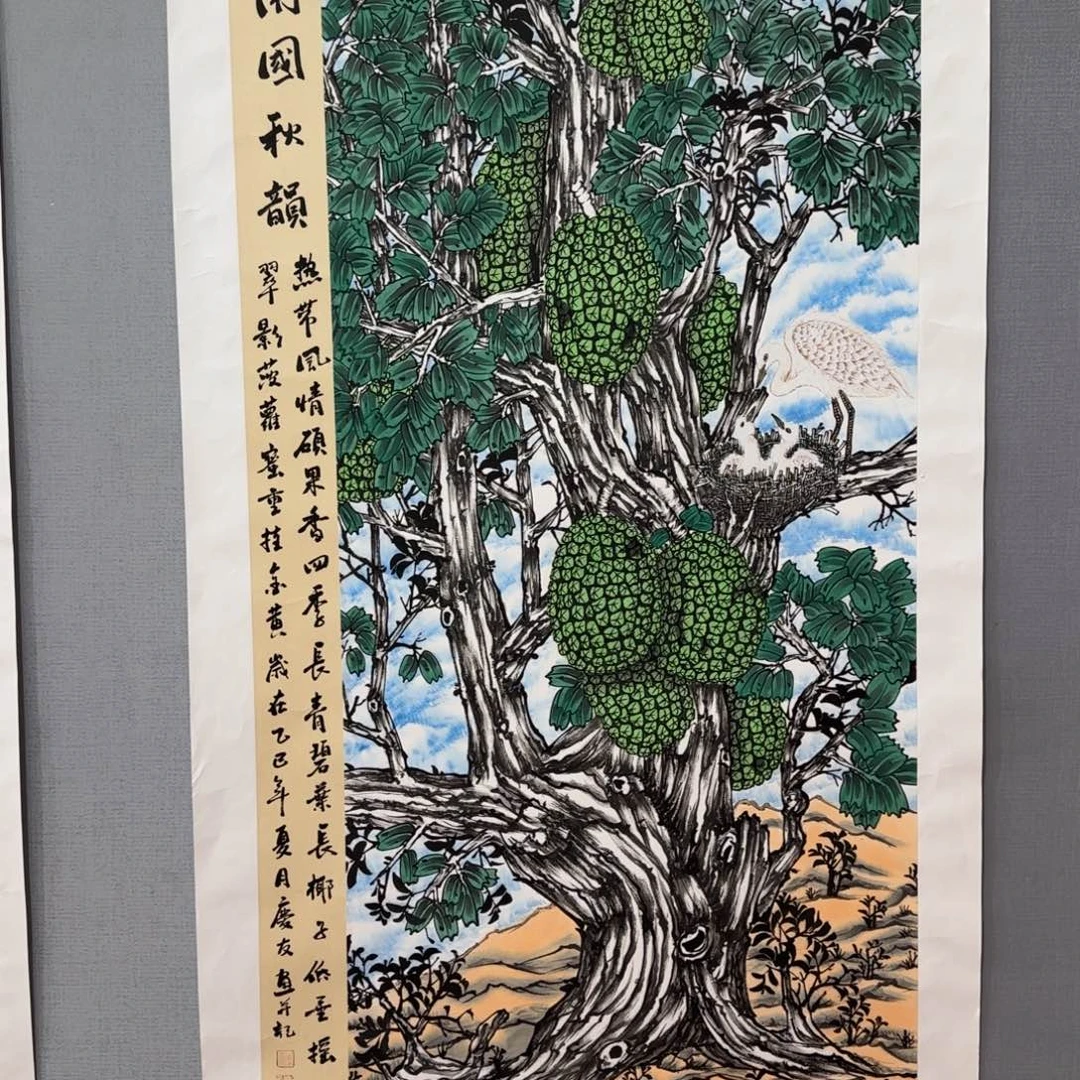 南國秋韻
熱带風情碩果香四季長青碧葉長椰子低垂摇
翠影菠蘿蜜重挂金黄歲在乙巳年夏月慶友画并記